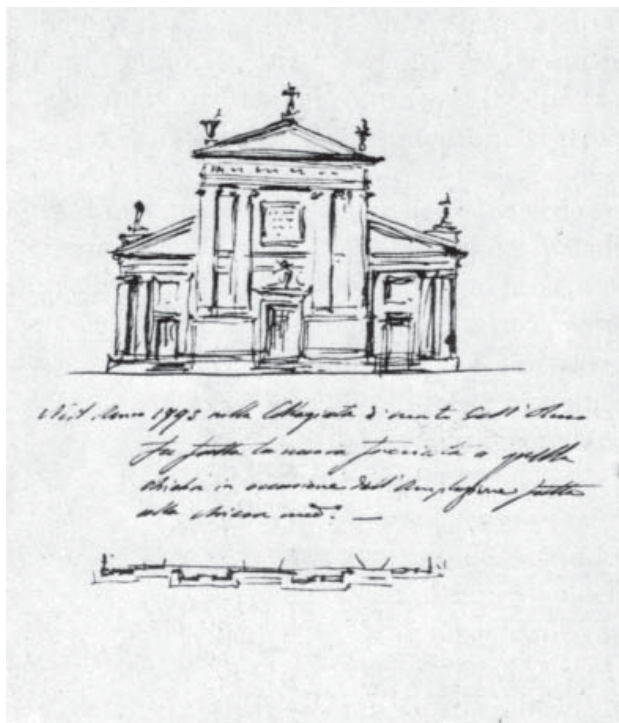 Nell'Anno 1795 nella Collegiata d' dell'Olmo
fu fatta la nuova facciata a quella
chiesa in occasione dell' fatta
alla chiesa med.ª —